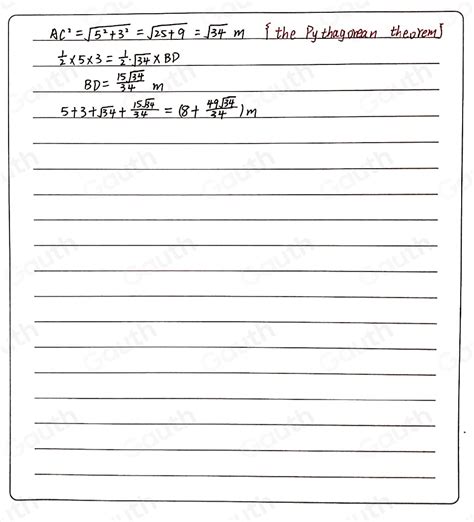 AC² = √5²+3² = √25+9 = √34 m { the Pythagorean theorem }
½ × 5 × 3 = ½ · √34 × BD
BD = 15√34/34 m
5+3+√34 + 15√34/34 = (8 + 49√34/34) m